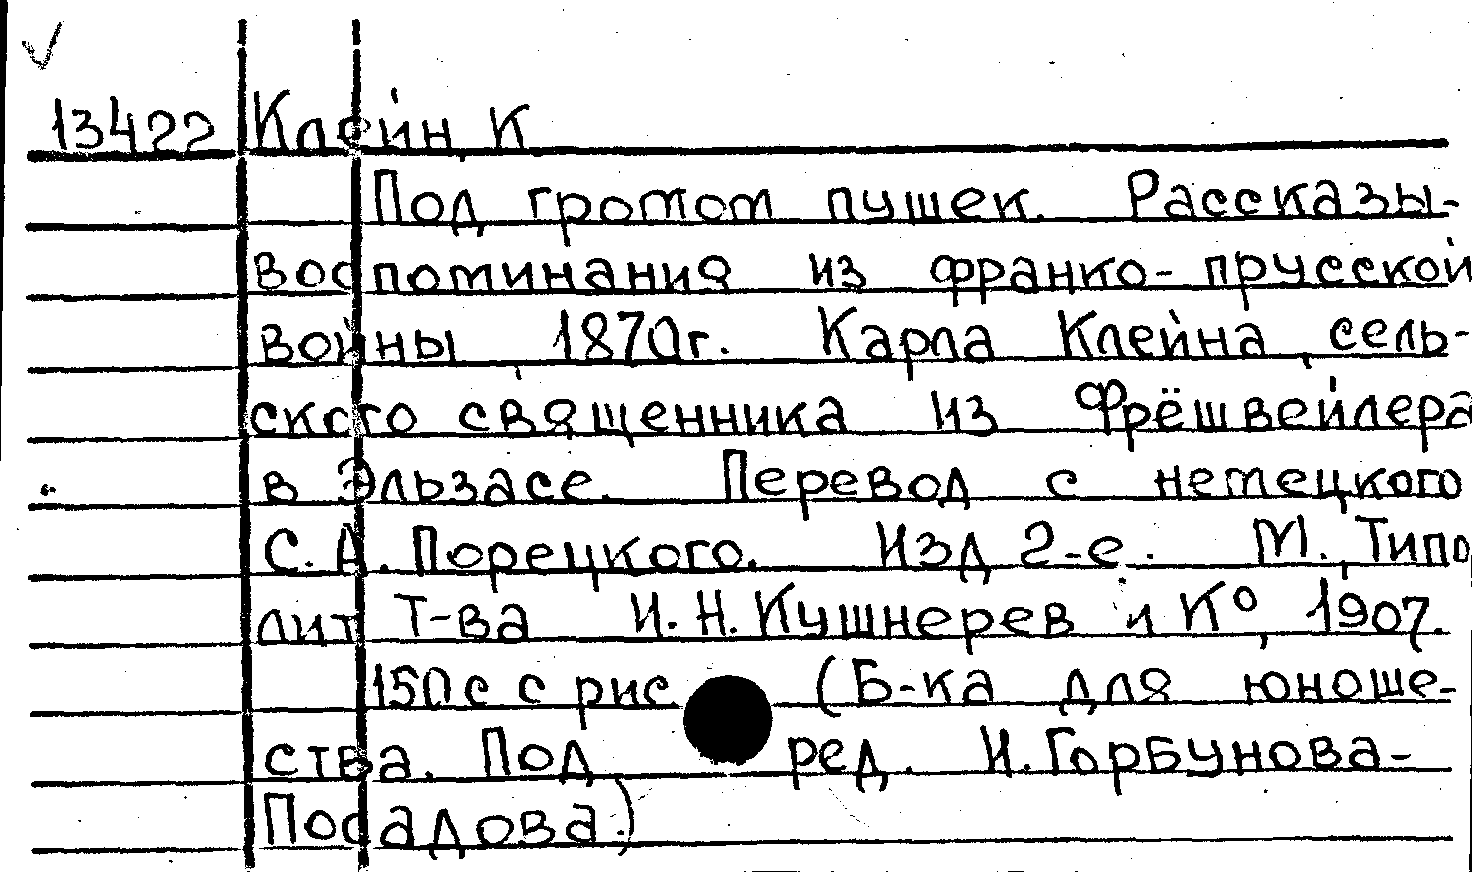 13422 Клейн, К
Под громом пушек. Рассказы-
воспоминания из франко-прусской
войны 1870г. Карла Клейна, сель-
ского священника из Фрёшвейлера
в Эльзасе. Перевод с немецкого
С.А. Порецкого. Изд 2-е. М., Типо
лит Т-ва И.Н. Кушнерев и К°, 1907.
150с с рис. (Б-ка для юноше-
ства. Под ред. И. Горбунова-
Посадова.)